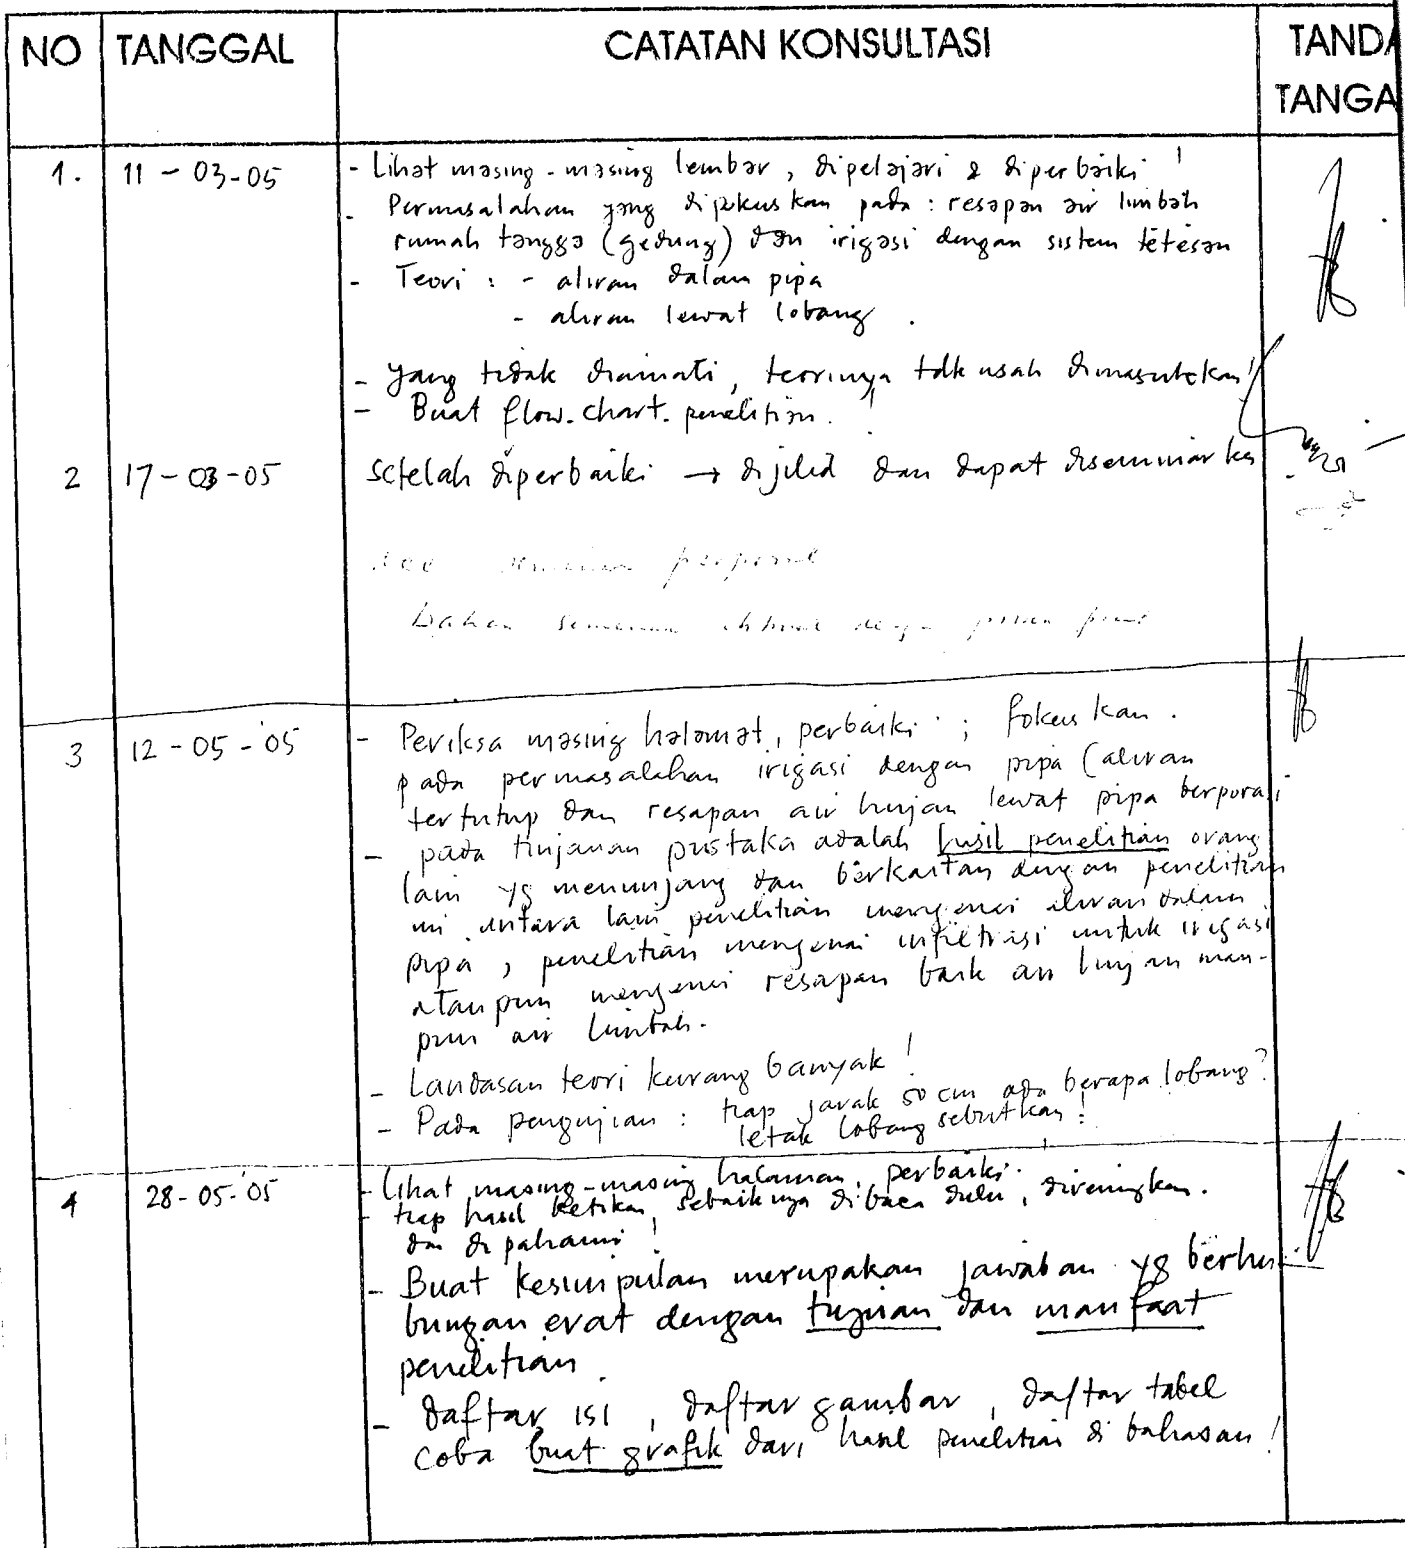 NO TANGGAL CATATAN KONSULTASI TANDA
TANGA
1. 11 - 03-05 - Lihat masing-masing lembar, dipelajari & diperbaiki !
- Permasalahan yang difokuskan pada : resapan air limbah
rumah tangga (gedung) dan irigasi dengan sistem tetesan
- Teori : - aliran dalam pipa
- aliran lewat lobang .
- yang tidak diamati, teorinya tdk usah dimasukkan !
- Buat flow.chart. penelitian. !
2 17-03-05 setelah diperbaiki → dijilid dan dapat diseminarka
seminar proposal
bahan seminar dengan
3 12-05-'05 - Periksa masing halamat, perbaiki ; fokuskan .
pada permasalahan irigasi dengan pipa (aliran
tertutup dan resapan air hujan lewat pipa berporasi
- pada tinjauan pustaka adalah hasil penelitian orang
lain yg menunjang dan berkaitan dengan penelitian
ini antara lain penelitian mengenai aliran dalam
pipa, penelitian mengenai infiltrasi untuk irigasi
ataupun mengenai resapan baik air hujan mau-
pun air limbah.
- Landasan teori kurang banyak !
- Pada pengujian : tiap jarak 50 cm ada berapa lobang?
letak lobang sebutkan !
4 28-05-'05 - Lihat masing-masing halaman, perbaiki.
- tiap hasil ketikan, sebaiknya dibaca dulu, direnungkan.
dan dipahami !
- Buat kesimpulan merupakan jawaban yg berhu
bungan erat dengan tujuan dan manfaat
penelitian.
- daftar isi, daftar gambar, daftar tabel
coba buat grafik dari hasil penelitian di bahasan !